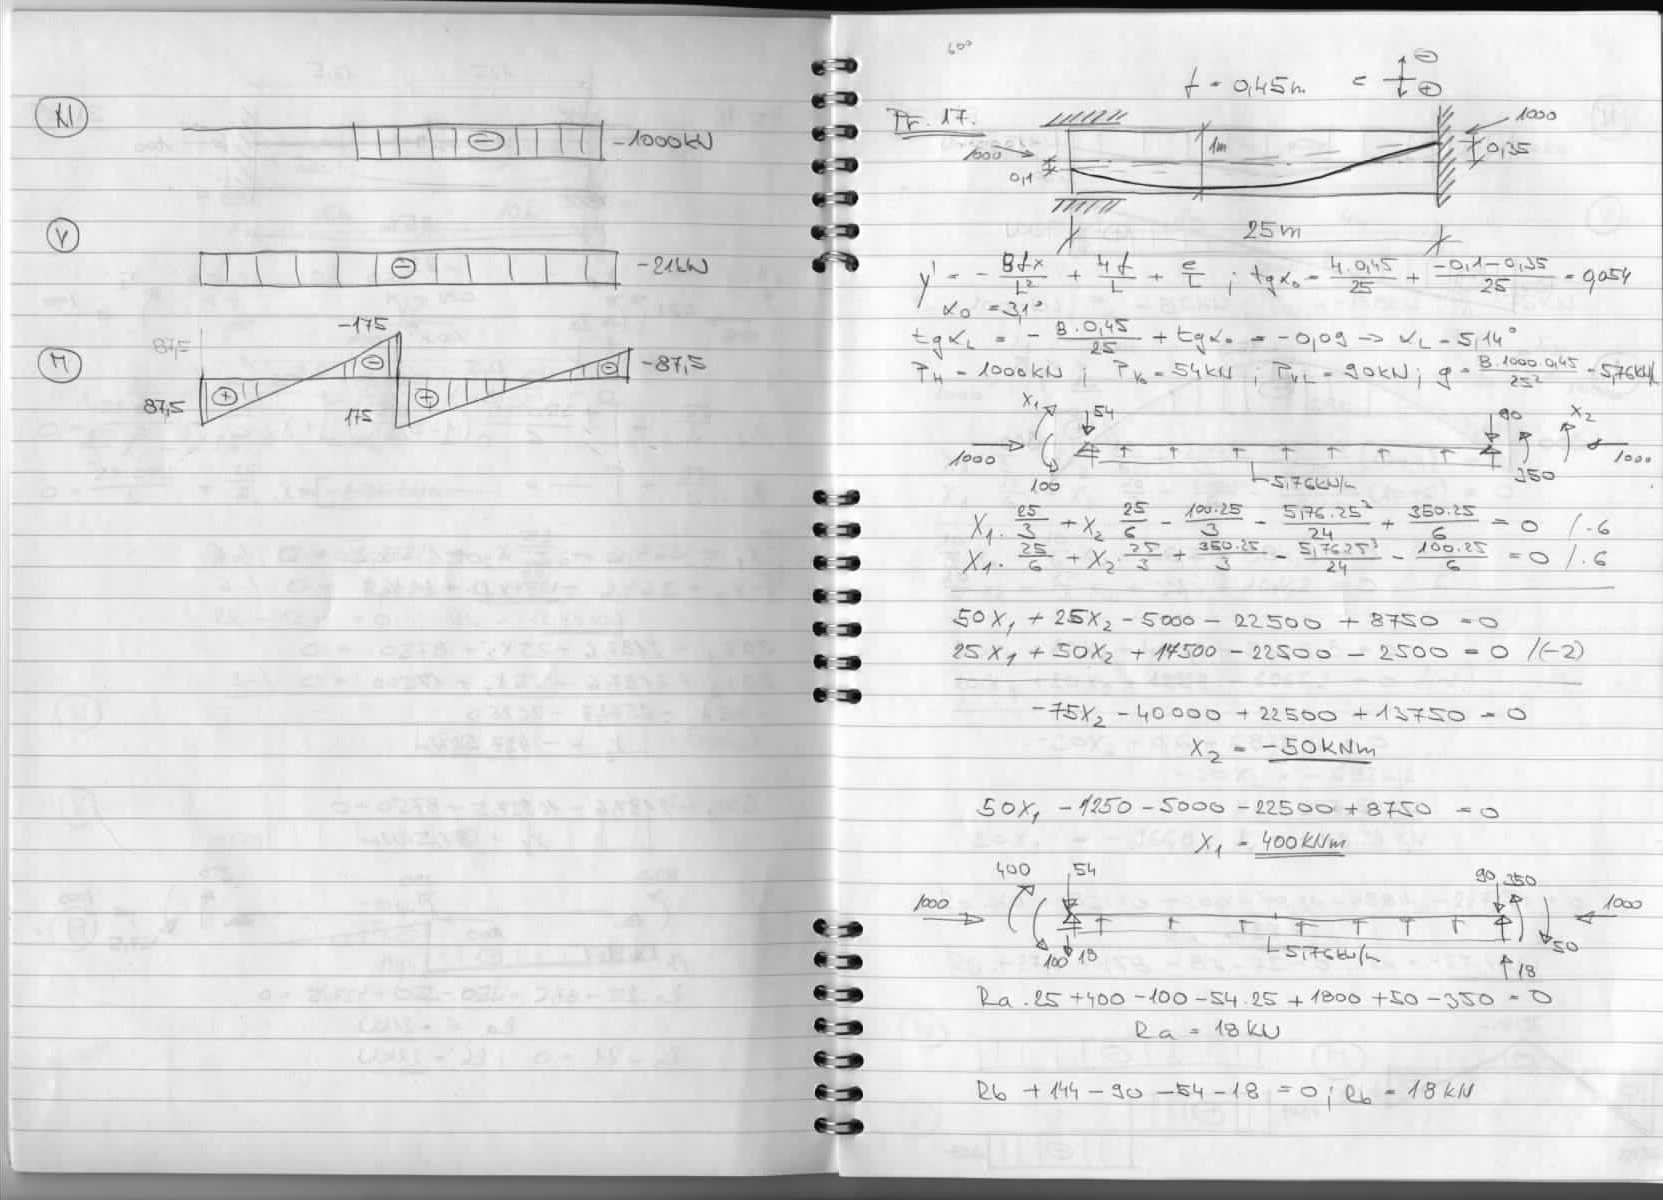 N
-1000kN
V
-21kN
-175
87,5
M
-87,5
87,5
175
600
f = 0,45m
Př. 17.
1000
1000
1m
0,35
0,1
25m
y' = - 8fx/L² + 4f/L + e/L ; tgα₀ = 4.0,45/25 + -0,1-0,35/25 = 0,054
α₀ = 3,1°
tgαL = - 8.0,45/25 + tgα₀ = -0,09 → αL = 5,14°
PH = 1000kN ; PV₀ = 54kN ; PVL = 90kN ; g = 8.1000.0,45/25² = 5,76kN/
X₁
54
90
X₂
1000
100
5,76kN/m
350
1000
X₁ . 25/3 + X₂ 25/6 - 100.25/3 - 5,76.25³/24 + 350.25/6 = 0 /.6
X₁ . 25/6 + X₂ . 25/3 + 350.25/3 - 5,7625³/24 - 100.25/6 = 0 /.6
50X₁ + 25X₂ - 5000 - 22500 + 8750 = 0
25X₁ + 50X₂ + 17500 - 22500 - 2500 = 0 /(-2)
-75X₂ - 40000 + 22500 + 13750 = 0
X₂ = -50kNm
50X₁ - 1250 - 5000 - 22500 + 8750 = 0
X₁ = 400kNm
400
54
90
350
1000
1000
100
18
5,76kN/m
50
18
Ra . 25 + 400 - 100 - 54.25 + 1800 + 50 - 350 = 0
Ra = 18kN
Rb + 144 - 90 - 54 - 18 = 0 ; Rb = 18kN